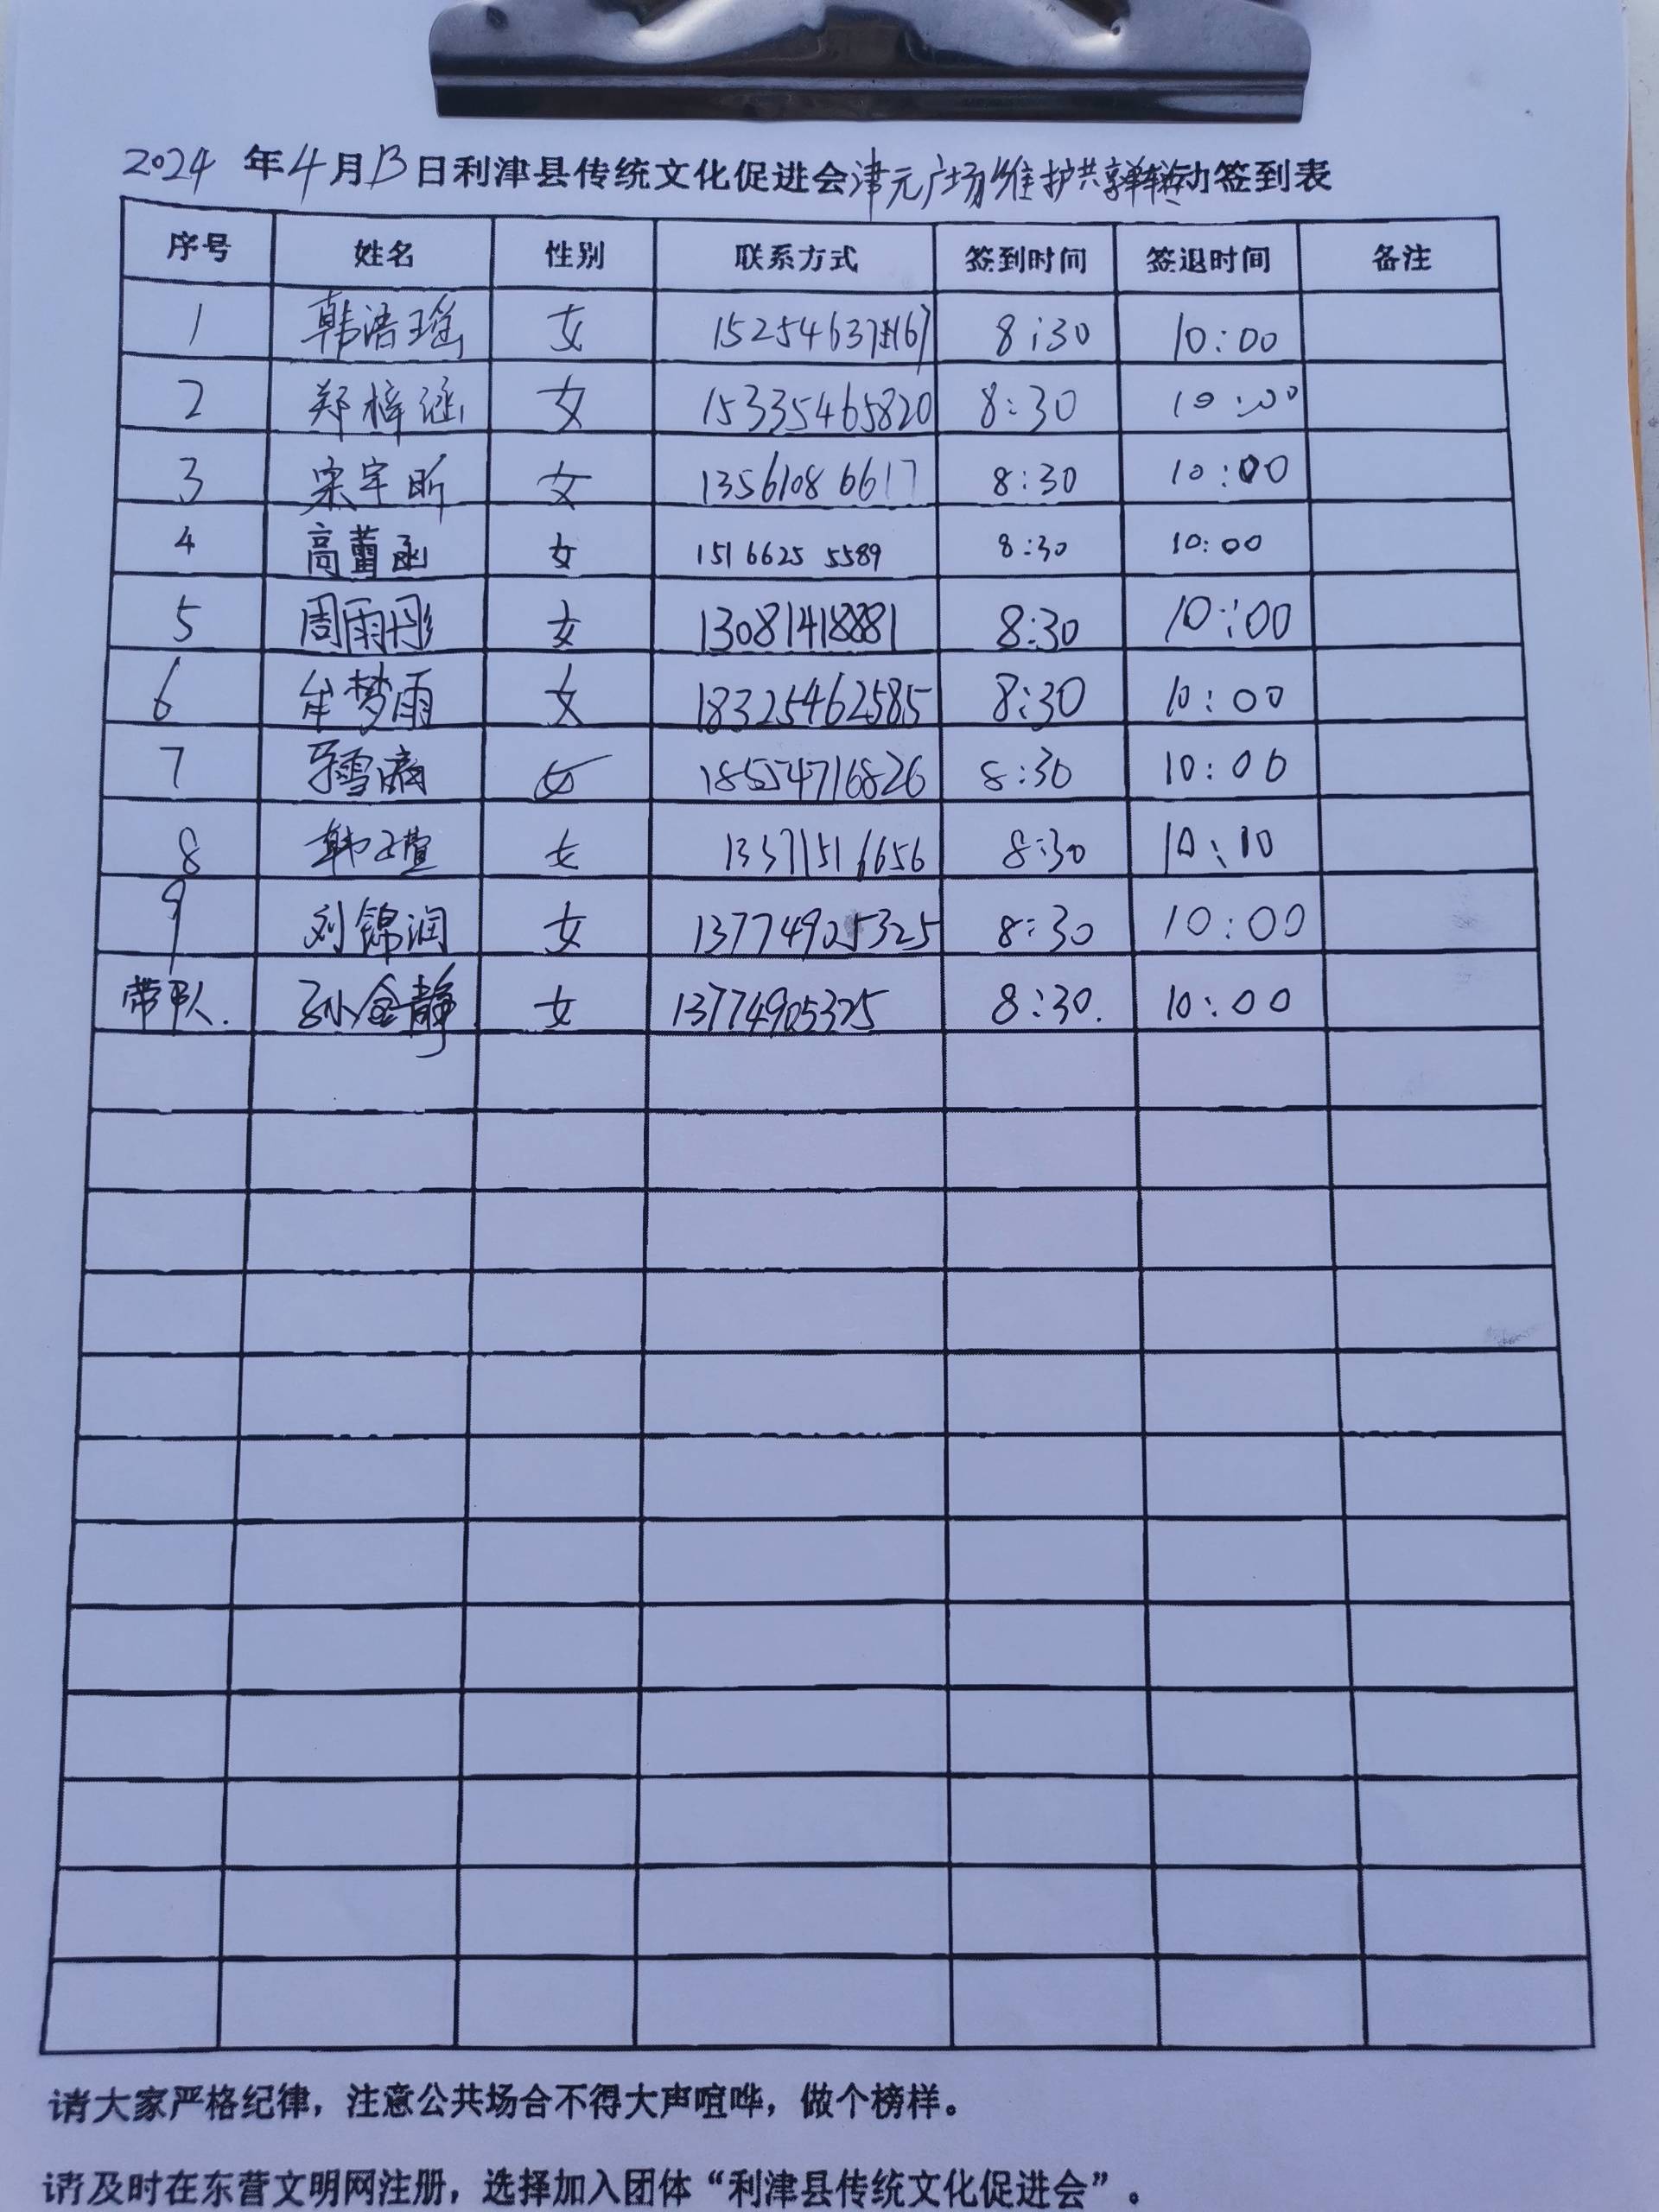 2024 年 4 月 13 日利津县传统文化促进会津元广场维护共享单车活动签到表
序号 姓名 性别 联系方式 签到时间 签退时间 备注
1 韩浩瑶 女 8:30 10:00
2 郑梓涵 女 15335465820 8:30 10:00
3 宋宇昕 女 13561086617 8:30 10:00
4 高蕾函 女 151 6625 5589 8:30 10:00
5 周雨彤 女 13081418881 8:30 10:00
6 牟梦雨 女 18325462585 8:30 10:00
7 女 18554716826 8:30 10:00
8 韩子萱 女 13371516656 8:30 10:10
9 刘锦润 女 13774905325 8:30 10:00
带队人. 孙金静 女 13774905325 8:30. 10:00
请大家严格纪律，注意公共场合不得大声喧哗，做个榜样。
请及时在东营文明网注册，选择加入团体“利津县传统文化促进会”。